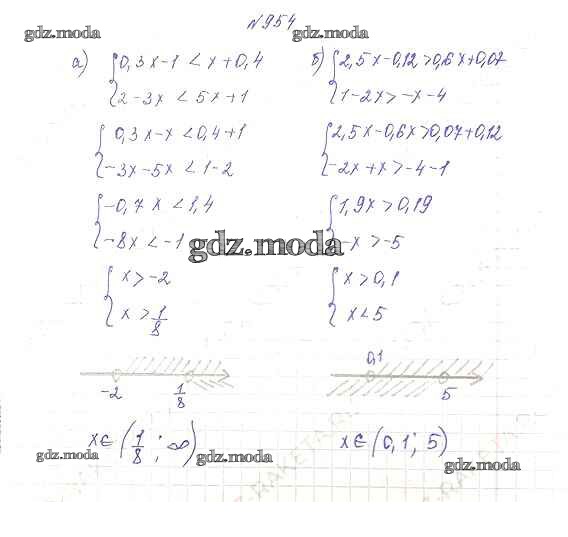 №954
gdz.moda
а) { 0,3x-1 < x+0,4
2-3x < 5x+1
{ 0,3x-x < 0,4+1
-3x-5x < 1-2
{ -0,7x < 1,4
-8x < -1
{ x > -2
x > 1/8
-2 1/8
x ∈ (1/8; ∞)
gdz.moda
б) { 2,5x-0,12 > 0,6x+0,07
1-2x > -x-4
{ 2,5x-0,6x > 0,07+0,12
-2x+x > -4-1
{ 1,9x > 0,19
-x > -5
{ x > 0,1
x < 5
0,1 5
x ∈ (0,1; 5)
gdz.moda
gdz.moda
gdz.moda
gdz.moda